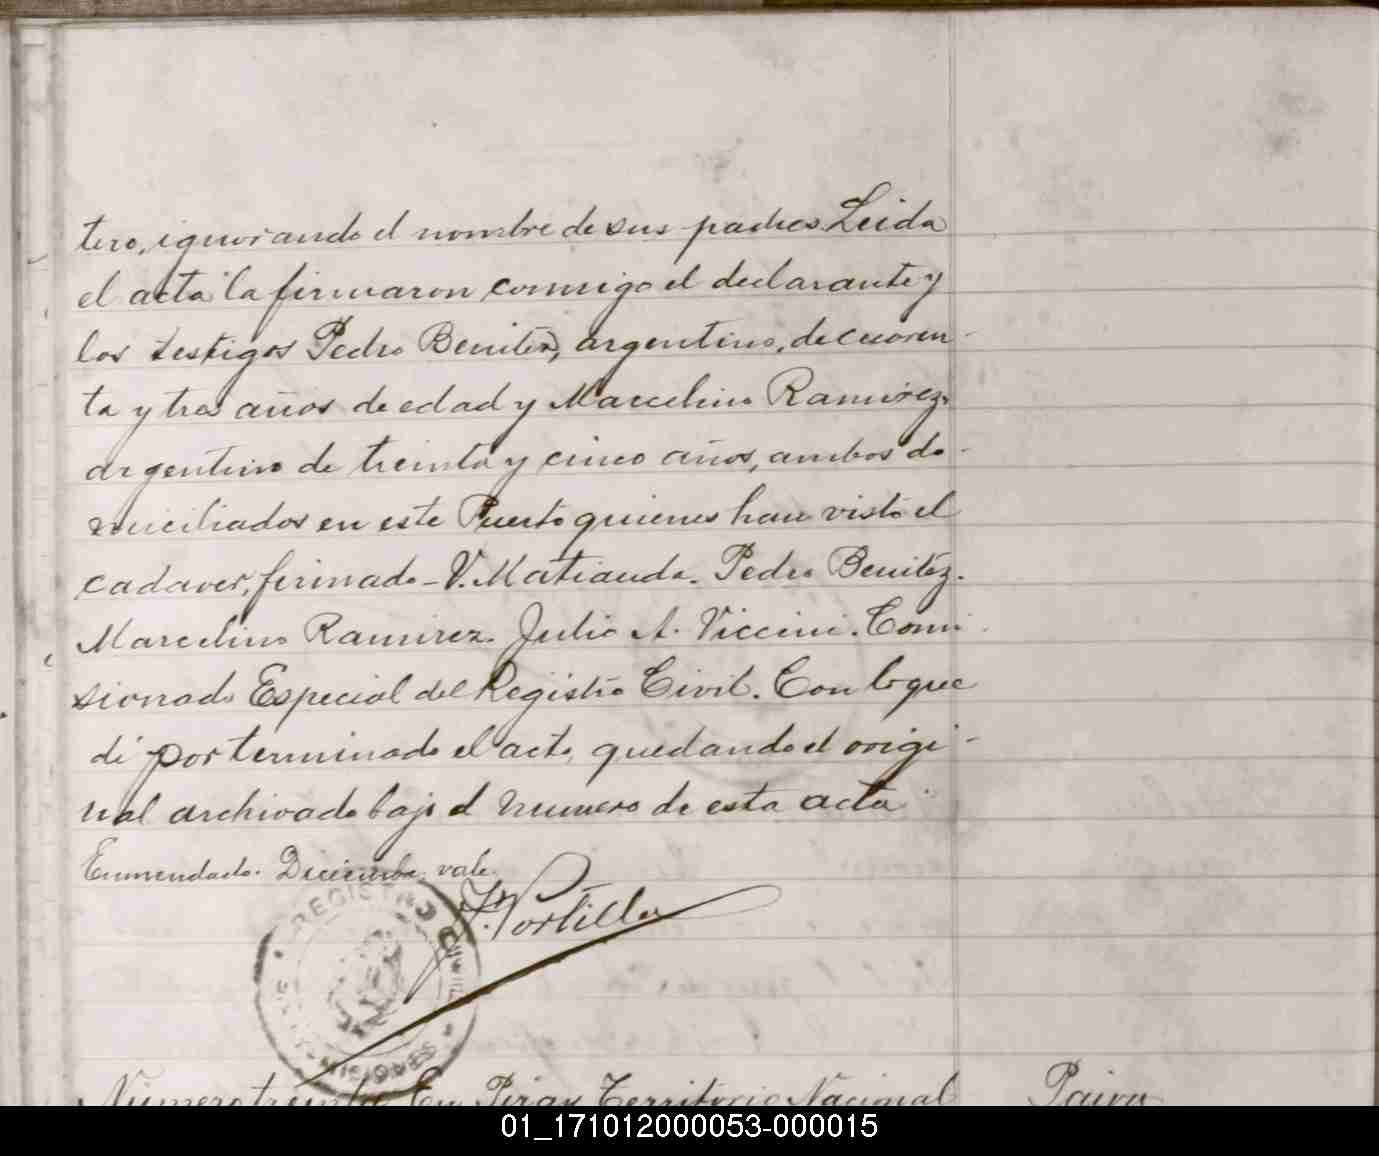 tero, ignorando el nombre de sus padres. Leida
el acta la firmaron conmigo el declarante y
los testigos Pedro Benitez, argentino, de cuaren-
ta y tres años de edad y Marcelino Ramirez,
argentino de treinta y cinco años, ambos do-
miciliados en este Puerto quienes han visto el
cadaver, firmado - V. Matiauda. Pedro Benitez.
Marcelino Ramirez. Julio A. Viccini. Comi-
sionado Especial del Registro Civil. Con lo que
di por terminado el acto, quedando el origi-
nal archivado bajo el numero de esta acta
Enmendado. Diciembre, vale.
Portillo
REGISTRO CIVIL
MISIONES
Numero treinta En Piray Territorio Nacional
Paiva
01_171012000053-000015